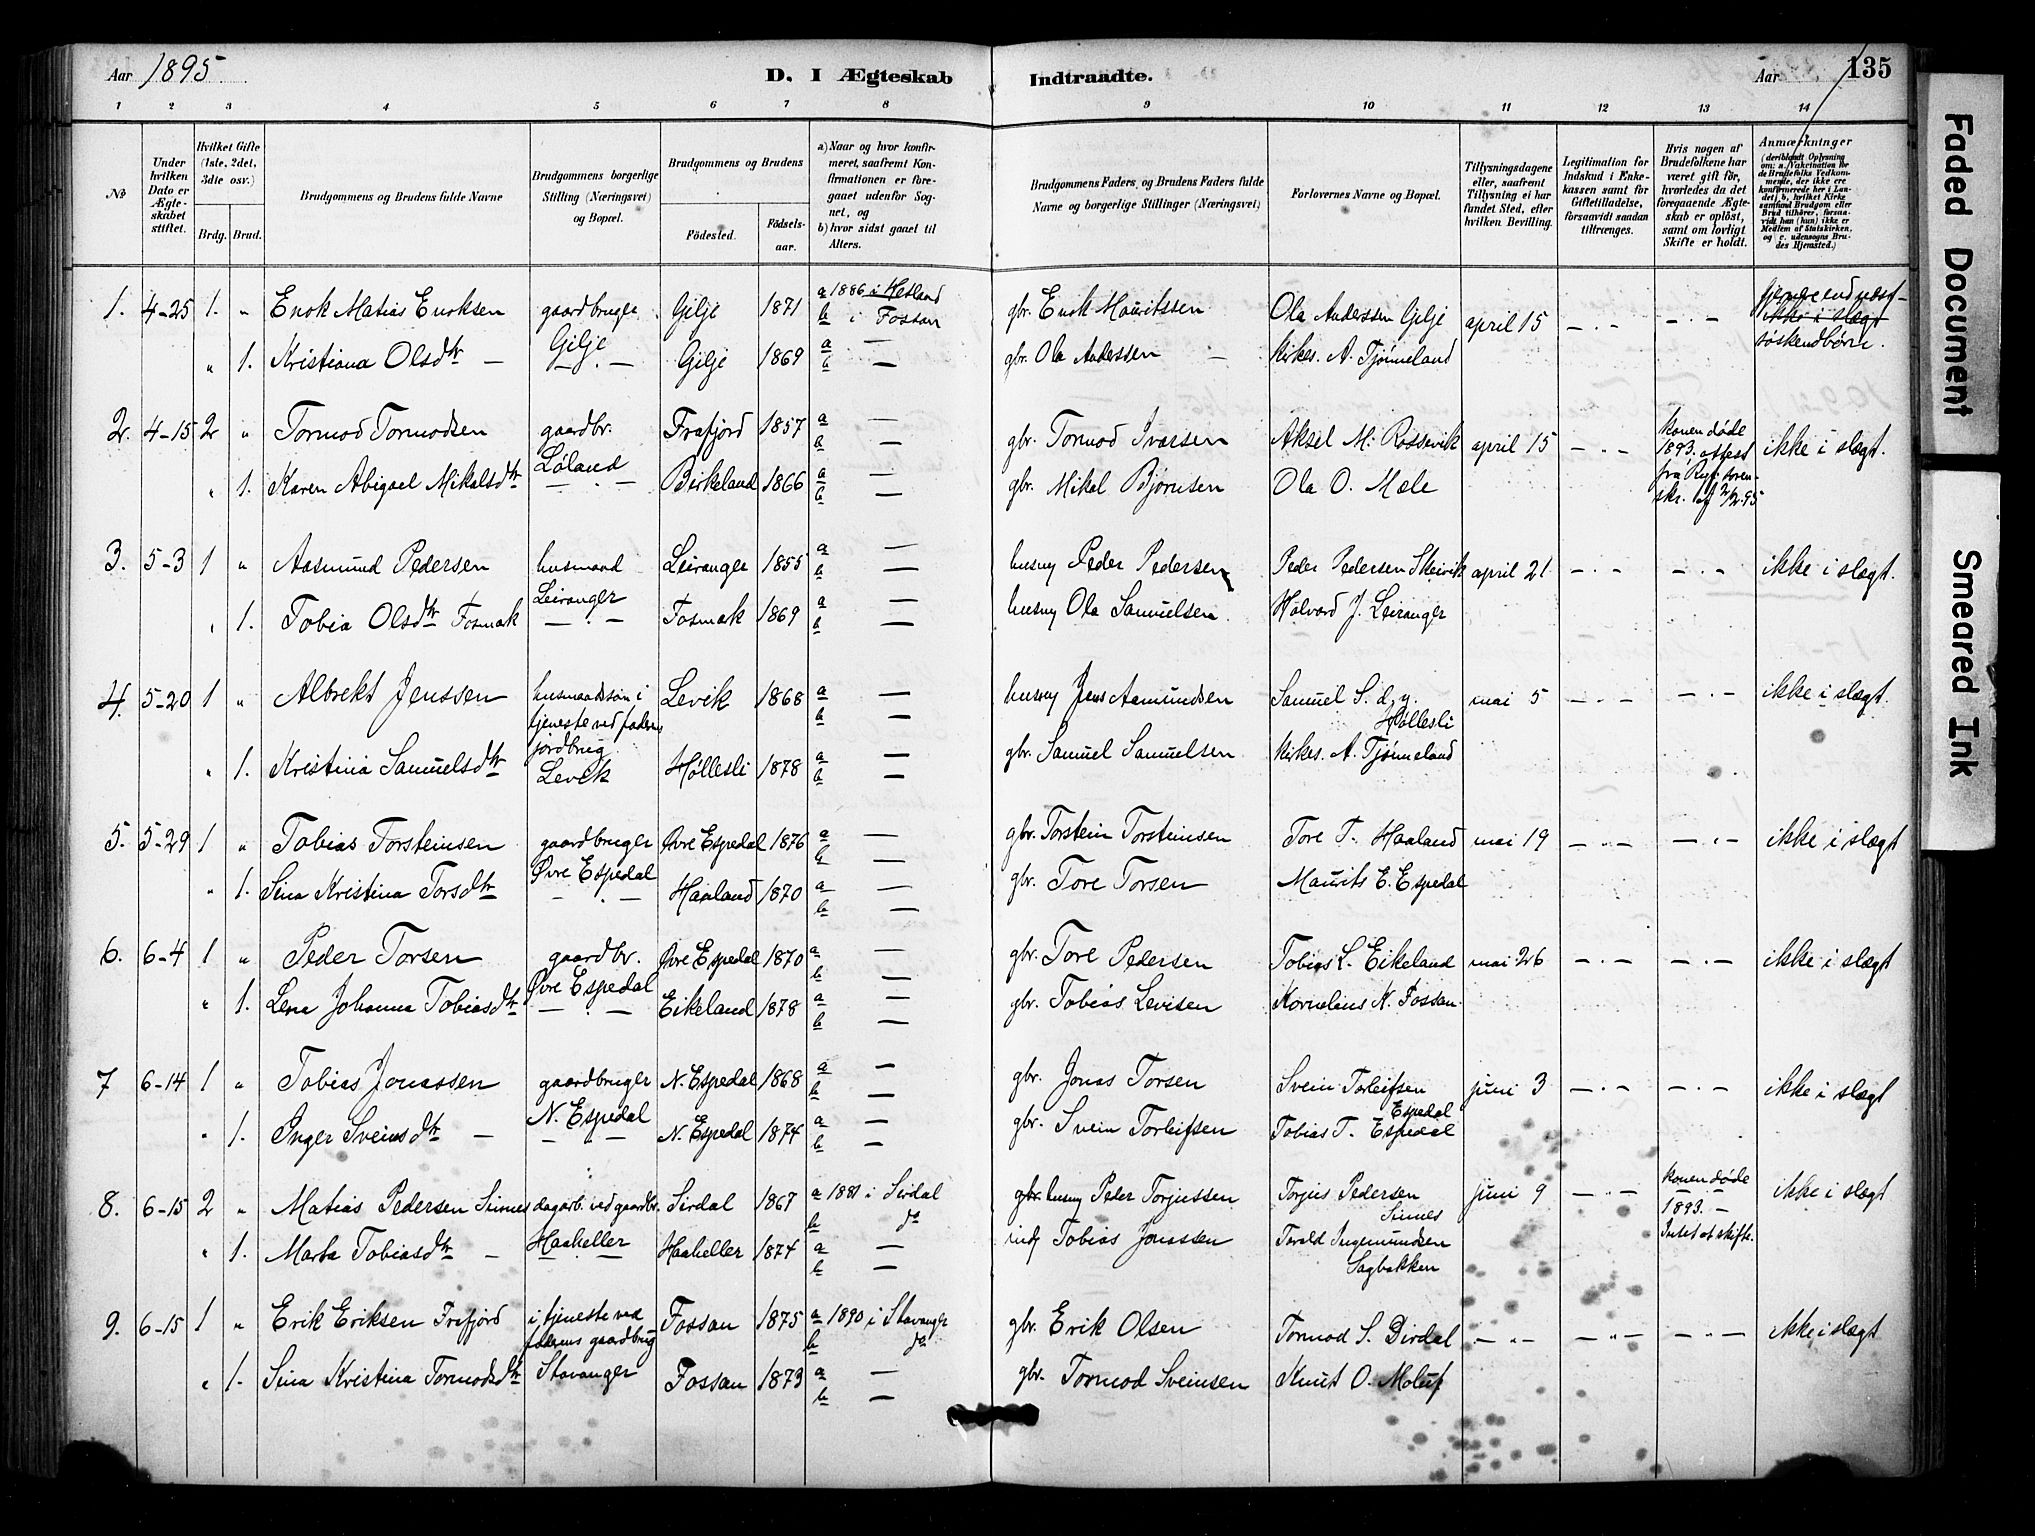 Aar 1895 D. I Ægteskab Indtraadte. Aar 135
1 2 3 4 5 6 7 8 9 10 11 12 13 14
No
Under hvilken Dato er Ægteskabet stiftet.
Hvilket Gifte (1ste, 2det, 3die osv.)
Brdg. Brud.
Brudgommens og Brudens fulde Navne
Brudgommens borgerlige Stilling (Næringsvei) og Bopæl.
Brudgommens og Brudens
Fødested. Fødselsaar.
a) Naar og hvor konfirmeret, saafremt Konfirmationen er foregaaet udenfor Sognet, og
b) hvor sidst gaaet til Alters.
Brudgommens Faders, og Brudens Faders fulde Navne og borgerlige Stillinger (Næringsvei)
Forlovernes Navne og Bopæl.
Tillysningsdagene eller, saafremt Tillysning ei har fundet Sted, efter hvilken Bevilling.
Legitimation for Indskud i Enkekassen samt for Giftetilladelse, forsaavidt saadan tiltrænges.
Hvis nogen af Brudefolkene har været gift før, hvorledes da det foregaaende Ægteskab er opløst, samt om lovligt Skifte er holdt.
Anmærkninger (deriblandt Oplysning om: a. Vakcination for de Brudefolks Vedkommende, der ikke ere konfirmerede her i Landet, b, hvilket Kirkesamfund Brudgom eller Brud tilhører, forsaavidt han (hun) ikke er Medlem af Statskirken, og c. udensogns Brudes Hjemsted.)
1. 4-25 1. " Enok Matias Enoksen gaardbruger Gilje Gilje 1871 a 1886 i Hetland b i Fossan gbr. Enok Mauritssen Ola Anderssen Gilje april 15 — " — — " — fjernere end næst- ikke i slægt søskendbørn.
" 1. Kristiana Olsdtr — — " — Gilje 1869 a — b — gbr. Ola Andessen — kirkes. A. Tjønneland
2. 4-15 2 " Tormod Tormodsen gaardbr. Løland Frafjord 1857 a — b — gbr. Tormod Ivarsen Aksel M. Rossevik april 15 — " — konen døde 1893, attest fra Ryf. sorenskr. af 2/2.95 ikke i slægt.
" 1. Karen Abigael Mikalsdtr — " — Birkeland 1866 a — b — gbr. Mikal Bjørnsen Ola O. Mæle
3. 5-3 1 " Aasmund Pedersen husmand Leiranger Leiranger 1855 a — b — husmy Peder Pedersen Peder Pedersen Skeivik april 21 — " — — " — ikke i slægt.
" 1. Tobia Olsdtr Fosmark — " — Fosmark 1869 a — b — husmy Ola Samuelsen Halvard J. Leiranger
4. 5-20 1 " Albrekt Jenssen husmandssøn i tjeneste ved faderens jordbrug. Levik Levik 1868 a — b — husmy Jens Aamundsen Samuel S. d. y. Høllesli mai 5 — " — — " — ikke i slægt
" 1. Kristina Samuelsdtr Høllesli 1878 a — b — gbr. Samuel Samuelsen kirkes. A. Tjønneland
5. 5-29 1 " Tobias Torsteinsen gaardbruger Øvre Espedal Øvre Espedal 1876 a — b — gbr. Torstein Torsteinsen Tore T. Haaland mai 19 — " — — " — ikke i slægt
" 1. Sina Kristina Torsdtr — " — Haaland 1870 a — b — gbr. Tore Torsen Maurits E. Espedal
6. 6-4 1 " Peder Torsen gaardbr. Øvre Espedal Øvre Espedal 1870 a — b — gbr. Tore Pedersen Tobias L. Eikeland mai 26 — " — — " — ikke i slægt
" 1. Lena Johanna Tobiasdtr — " — Eikeland 1878 a — b — gbr. Tobias Levisen Kornelius N. Fossan.
7 6-14 1 " Tobias Jonassen gaardbruger N. Espedal N. Espedal 1868 a — b — gbr. Jonas Torsen Svein Torleifsen Espedal juni 3 — " — — " — ikke i slægt
" 1. Inger Sveinsdtr — — " — N. Espedal 1874 a — b — gbr. Svein Torleifsen Tobias T. Espedal
8. 6-15 2 " Matias Pedersen Sinnes dagarb. ved gaardbr. Haaheller Sirdal 1867 a 1881 i Sirdal b do gbr. husmy Peder Torjussen Torjus Pedersen Sinnes juni 9 — " — konen døde 1893. — Intet at skifte. ikke i slægt
" 1. Marta Tobiasdtr — Haaheller 1874 a — b — ind Tobias Jonassen Torald Ingemundsen Sagbakken
9. 6-15 1 " Erik Eriksen Frafjord i tjeneste ved faderens gaardbrug Stavanger Fossan 1875 a 1890 i Stavanger b do gbr. Erik Olsen Tormod S. Dirdal — " — — " — — " — ikke i slægt
" 1. Sina Kristina Tormodsdtr Fossan 1873 a — b — gbr. Tormod Sveinsen Knut O. Molaug
Faded Document
Smeared Ink